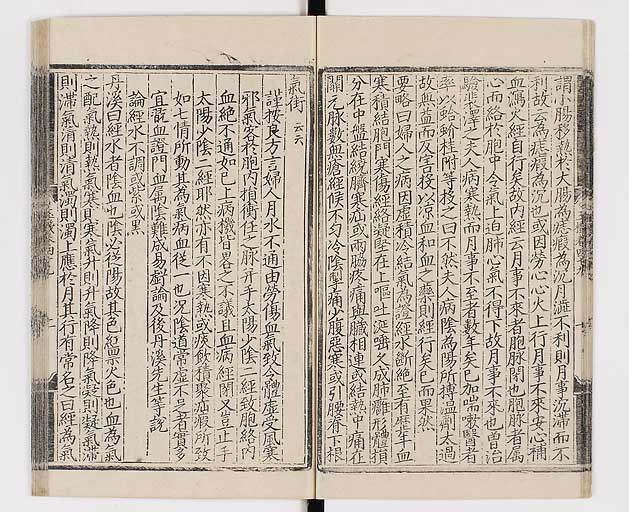 謂小腸移熱於大腸為虙瘕為沉月澁不利則月事沉滯而不
利故云為虙瘕為沉也或因勞心心火上行月事不來安心補
血瀉火經自行矣故内經云月事不來者胞脉閉也胞脉者属
心而絡於胞中今氣上迫肺心氣不得下故月事不來也曽治
驗 之夫人病寒熱而月事不至者數年矣已加喘嗽醫者
率以蛤蚧桂附等投之曰不然夫人病陰為陽所搏温劑太過
故無益而反害投以凉血和血之藥則經行矣已而果然
要略曰婦人之病因虛積冷結氣為證經水斷絶至有歷年血
寒積結胞門寒傷經絡凝堅在上嘔吐涎唾久成肺癰形體損
分在中盤結繞臍寒疝或兩脇疼痛與臓相連或結熱中痛在
關元脉數無瘡經候不勻冷陰掣痛少腹惡寒或引腰脊下根
氣街 云云
謹按良方言婦人月水不通由勞傷血氣致令體虛受風寒
邪氣客於胞内損衝任之脉并手太陽少陰二經致胞絡内
血絶不通如已上病機皆畧之不議且血病經閉又豈止手
太陽少陰二經耶然亦有不因寒熱或痰飲積聚疝瘕所致
如七情所動其為氣病血從一也況陰道常虛不足者實多
宜翫血證門血属陰難成易虧論及後丹溪先生等說
論經水不調或紫或黒
丹溪曰經水者陰血也陰必從陽故其色 禀火色也血為氣
之配氣熱則熱氣寒則寒氣升則升氣降則降氣凝則凝氣滯
則滯氣清則清氣濁則濁上應於月其行有常名之曰經為氣